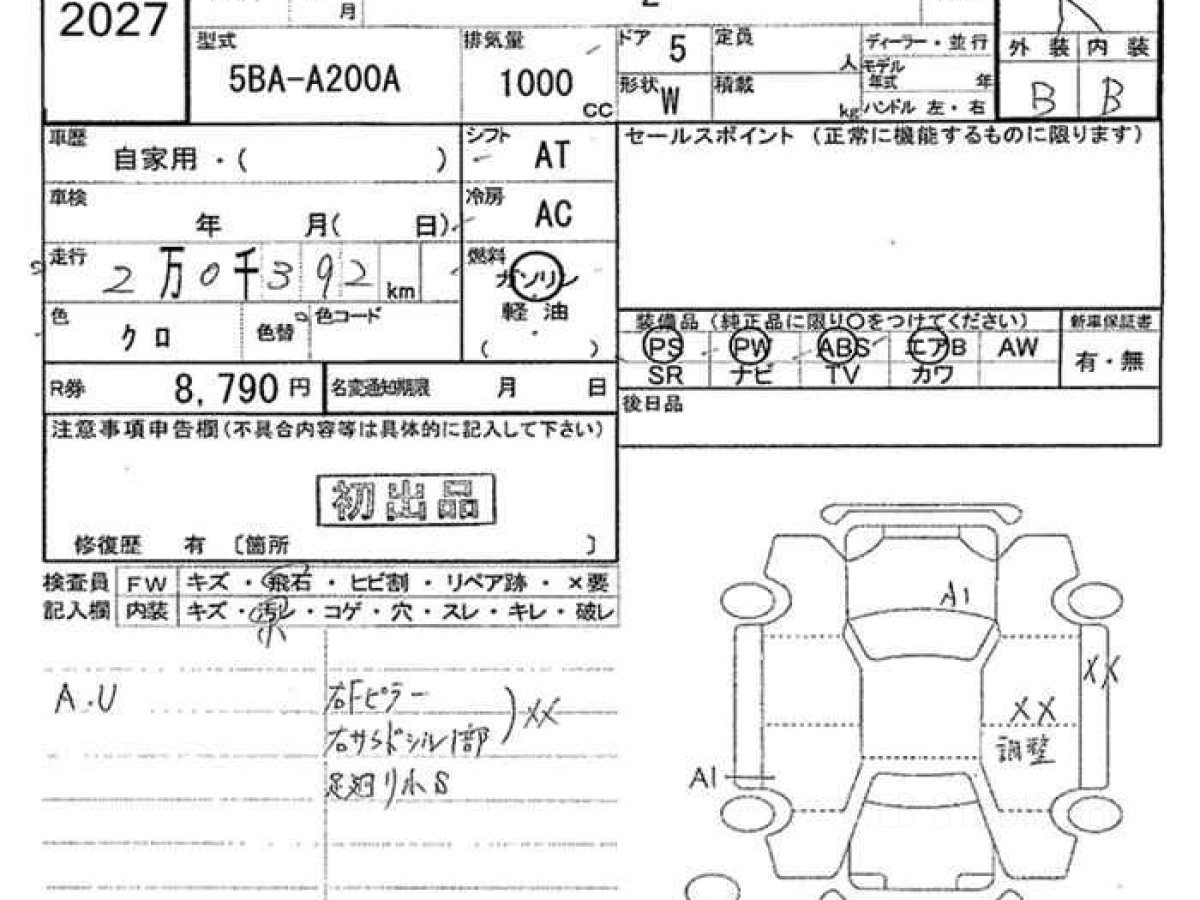 2027
月
型式
5BA-A200A
排気量
1000
CC
ドア 5
定員
人
形状 W
積載
kg
ディーラー・並行
モデル年式
年
ハンドル 左・右
外装 内装
B B
車歴
自家用・( )
シフト
AT
車検
年 月( 日)
冷房
AC
走行
2万0千392km
燃料
ガソリン
軽油
( )
色
クロ
色替
色コード
R券
8,790円
名変通知期限 月 日
セールスポイント (正常に機能するものに限ります)
装備品 (純正品に限り〇をつけてください)
新車保証書
PS PW ABS エアB AW
SR ナビ TV カワ
有・無
後日品
注意事項申告欄(不具合内容等は具体的に記入して下さい)
初出品
修復歴 有 〔箇所 〕
検査員 FW キズ・飛石・ヒビ割・リペア跡・×要
記入欄 内装 キズ・汚レ・コゲ・穴・スレ・キレ・破レ
A.U
右Fピラー
右サイドシル1部
XX
足廻り小S
A1
XX
XX
調整
A1